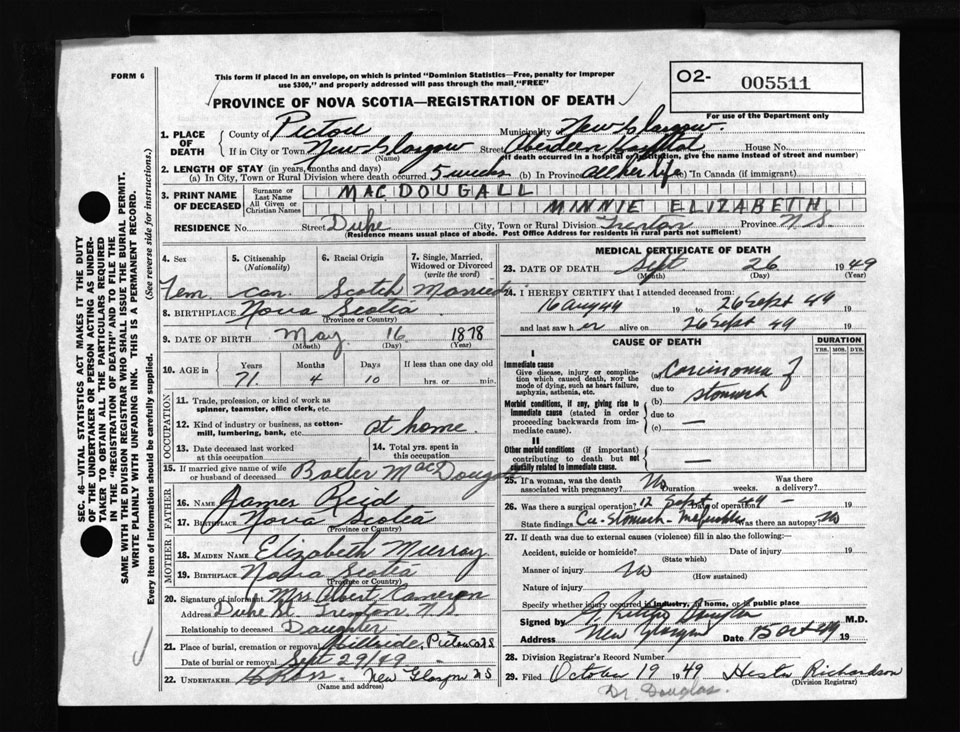 FORM 6
This form if placed in an envelope, on which is printed "Dominion Statistics—Free, penalty for improper
use $300," and properly addressed will pass through the mail, "FREE"
O2- 005511
For use of the Department only
PROVINCE OF NOVA SCOTIA—REGISTRATION OF DEATH
1. PLACE OF DEATH
County of Pictou Municipality of New Glasgow.
If in City or Town New Glasgow Street Aberdeen Hospital House No.
(Name) (If death occurred in a hospital or institution, give the name instead of street and number)
2. LENGTH OF STAY (in years, months and days)
(a) In City, Town or Rural Division where death occurred 5 weeks (b) In Province all her life (c) In Canada (if immigrant)
3. PRINT NAME OF DECEASED
Surname or Last Name MACDOUGALL
All Given or Christian Names MINNIE ELIZABETH
RESIDENCE No. Street Duke City, Town or Rural Division Trenton Province N.S.
(Residence means usual place of abode. Post Office Address for residents in rural parts not sufficient)
4. Sex Fem.
5. Citizenship (Nationality) Can.
6. Racial Origin Scotch
7. Single, Married, Widowed or Divorced (write the word) Married
8. BIRTHPLACE Nova Scotia
(Province or Country)
9. DATE OF BIRTH May 16 1878
(Month) (Day) (Year)
10. AGE in Years Months Days If less than one day old
71 4 10 hrs. or min.
OCCUPATION
11. Trade, profession, or kind of work as spinner, teamster, office clerk, etc.
12. Kind of industry or business, as cotton-mill, lumbering, bank, etc. at home.
13. Date deceased last worked at this occupation
14. Total yrs. spent in this occupation
15. If married give name of wife or husband of deceased Baxter MacDougall
FATHER
16. NAME James Reid
17. BIRTHPLACE Nova Scotia
(Province or Country)
MOTHER
18. MAIDEN NAME Elizabeth Murray
19. BIRTHPLACE Nova Scotia
(Province or Country)
20. Signature of informant Mrs Albert Cameron
Address Duke St. Trenton N S
Relationship to deceased Daughter
21. Place of burial, cremation or removal Hillside, Pictou Co N.S.
Date of burial or removal Sept 29/49
22. UNDERTAKER H Ross. New Glasgow N S
(Name and address)
MEDICAL CERTIFICATE OF DEATH
23. DATE OF DEATH Sept 26 1949
(Month) (Day) (Year)
24. I HEREBY CERTIFY that I attended deceased from:
16 Aug 49 19 to 26 Sept 49 19
and last saw her alive on 26 Sept 49 19
CAUSE OF DEATH
DURATION
YRS. MOS. DYS.
I
Immediate cause
Give disease, injury or complication which caused death, NOT the mode of dying, such as heart failure, asphyxia, asthenia, etc.
(a) Carcinoma of
due to
(b) stomach
Morbid conditions, if any, giving rise to immediate cause (stated in order proceeding backwards from immediate cause).
due to
(c) —
II
Other morbid conditions (if important) contributing to death but not causally related to immediate cause. —
25. If a woman, was the death associated with pregnancy? No Duration weeks. Was there a delivery?
26. Was there a surgical operation? 12 Sept 49 Date of operation —
State findings Ca-Stomach - Was there an autopsy? No
27. If death was due to external causes (violence) fill in also the following:—
Accident, suicide or homicide? Date of injury 19
(State which)
Manner of injury No
(How sustained)
Nature of injury
Specify whether injury occurred in industry, at home, or in public place
Signed by Douglas M.D.
Address New Glasgow Date 15 Oct 49 19
28. Division Registrar's Record Number
29. Filed October 19 1949 Hester Richardson
(Division Registrar)
Dr. Douglas.
SEC. 46—VITAL STATISTICS ACT MAKES IT THE DUTY
OF THE UNDERTAKER OR PERSON ACTING AS UNDER-
TAKER TO OBTAIN ALL THE PARTICULARS REQUIRED
IN THE "REGISTRATION OF DEATH" AND TO FILE THE
SAME WITH THE DIVISION REGISTRAR WHO SHALL ISSUE THE BURIAL PERMIT.
WRITE PLAINLY WITH UNFADING INK. THIS IS A PERMANENT RECORD.
Every item of information should be carefully supplied. (See reverse side for instructions.)